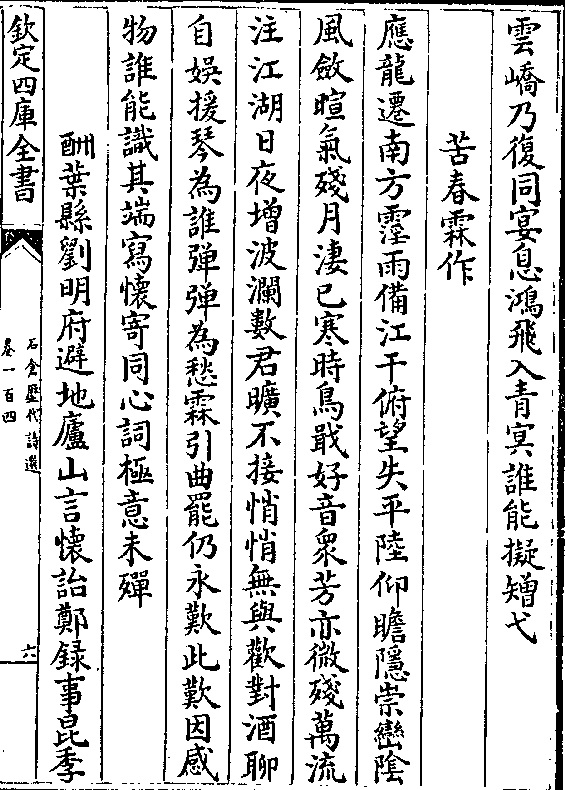 雲嶠乃復同宴息鴻飛入青冥誰能擬矰弋
苦春霖作
應龍遷南方霪雨備江干俯望失平陸仰瞻隱崇巒陰
風斂暄氣殘月淒已寒時鳥戢好音衆芳亦微殘萬流
注江湖日夜增波瀾數君曠不接悄悄無與歡對酒聊
自娛援琴為誰彈彈為愁霖引曲罷仍永歎此歎因感
物誰能識其端寫懷寄同心詞極意未殫
酬葉縣劉明府避地廬山言懷詒鄭録事昆季
欽定四庫全書
石倉歷代詩選
卷一百四
六